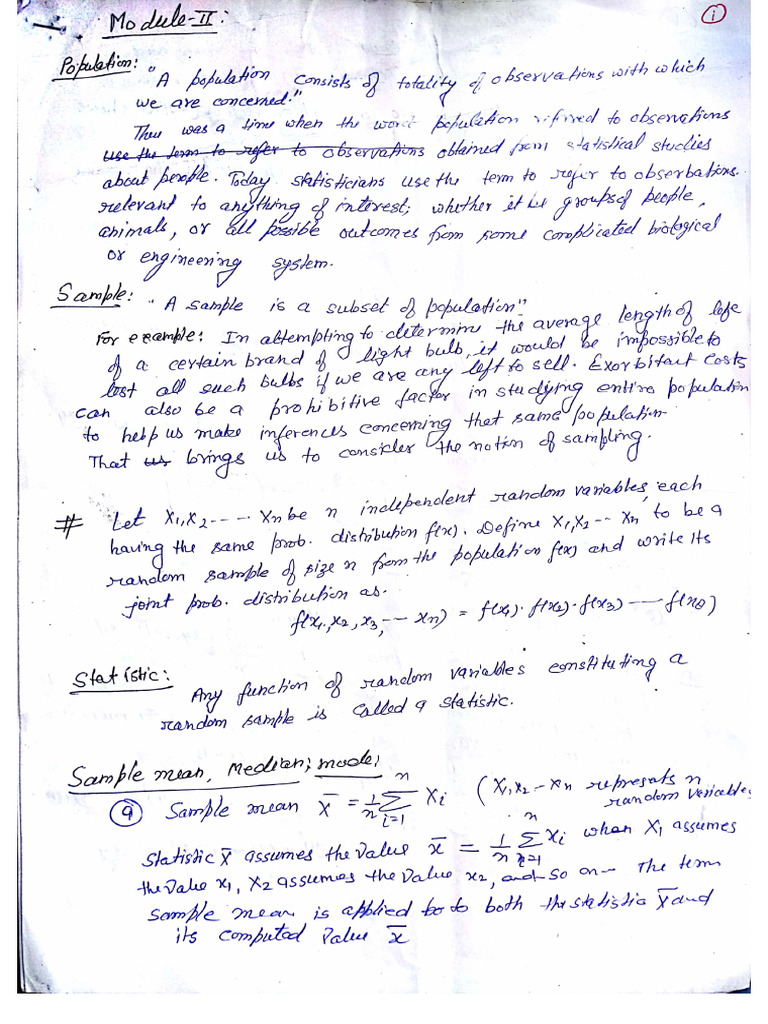 Module-II:
i
Population: "A population consists of totality of observations with which
we are concerned."
Thee was a time when the word population refirred to observations
use the term to refer to observations obtained from statistical studies
about people. Today statisticians use the term to refer to obserbations.
relevant to anything of interest; whether it be groups of people,
animals, or all possible outcomes from some complicated biological
or engineering system.
Sample: "A sample is a subset of population"
For example: In attempting to determine the average length of life
of a certain brand of light bulb, it would be impossible to
test all such bulbs if we are any left to sell. Exorbitant costs
can also be a prohibitive factor in studying entire population
to help us make inferences concerning that same population.
That us brings us to consider the notion of sampling.
# Let X1, X2 ---- Xn be n independent random variables, each
having the same prob. distribution f(x). Define X1, X2 -- Xn to be a
random sample of size n from the population f(x) and write its
joint prob. distribution as.
f(x1, x2, x3, -- xn) = f(x1)· f(x2)· f(x3) --- f(xn)
Statistic: Any function of random variables constituting a
random sample is called a statistic.
Sample mean, Median, mode;
(a) Sample mean X̄ = 1/n ∑ i=1 n Xi (X1, X2 -- Xn represats n
random variables
Statistic X̄ assumes the value x̄ = 1/n ∑ i=1 n xi when X1 assumes
the value x1, X2 assumes the value x2, and so on-- The term
sample mean is applied to both the statistic X̄ and
its computed value x̄